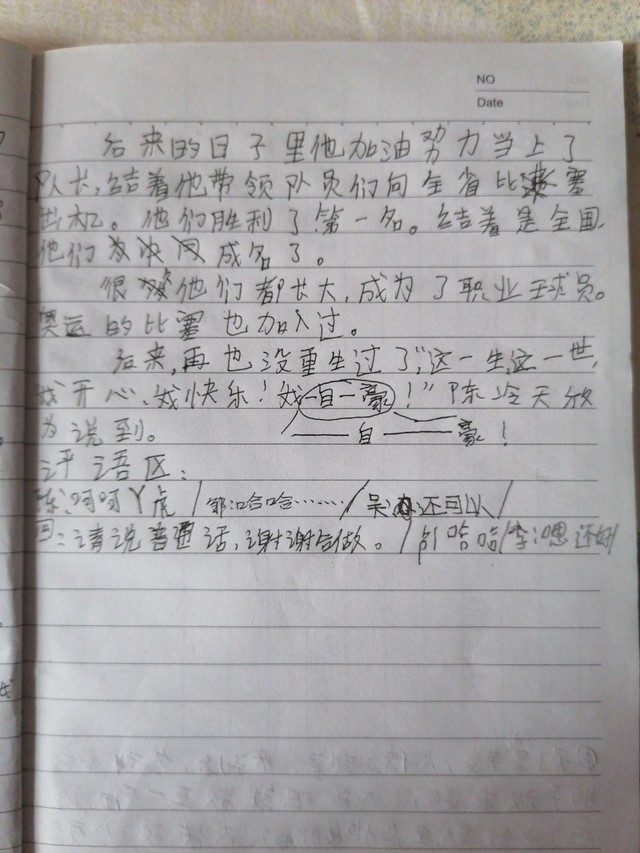 NO
Date
后来的日子里他加油努力当上了
队长,结着他带领队员们向全省比赛
出机。他们胜利了第一名。结着是全国,
他们成名了。
很他们都长大,成为了职业球员。
奥运的比赛也加入过。
后来,再也没重生过了,"这一生这一世,
我开心、我快乐!我自豪!"陈冷天欣
自豪!
为说到。
评语区:
陈:呵呵丫虎/邹:哈哈……/吴:还可以/
回:请说普通话,谢谢合做。/哈哈/李:嗯还好